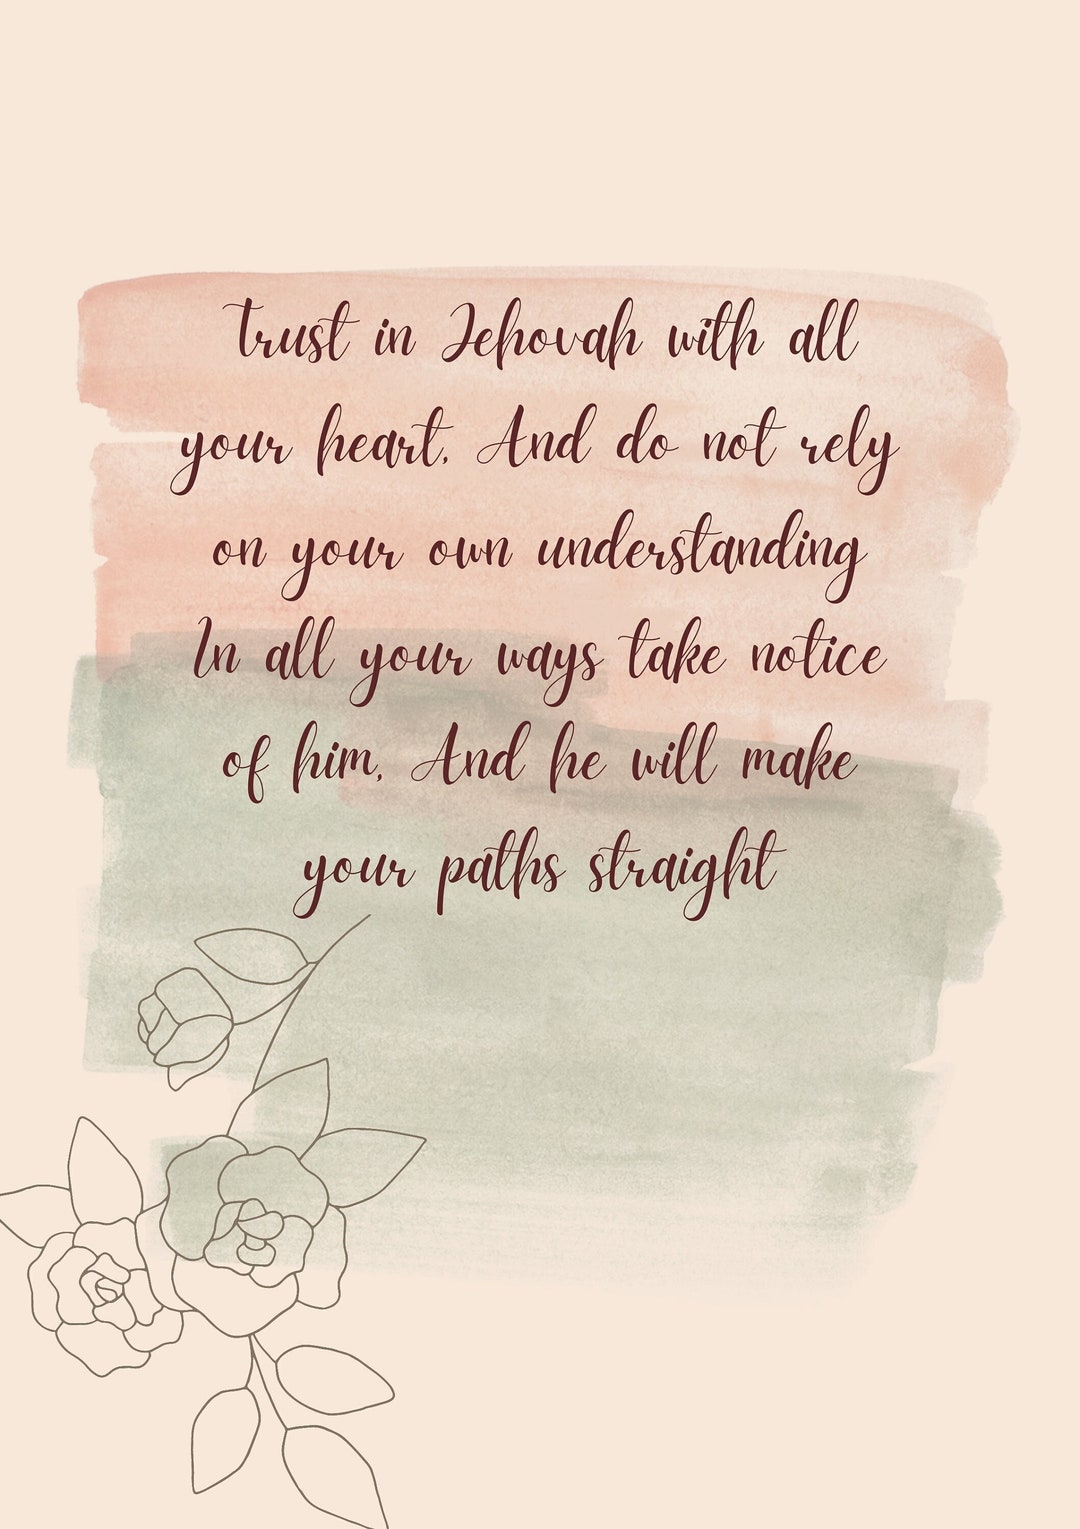 Trust in Jehovah with all
your heart, And do not rely
on your own understanding
In all your ways take notice
of him, And he will make
your paths straight